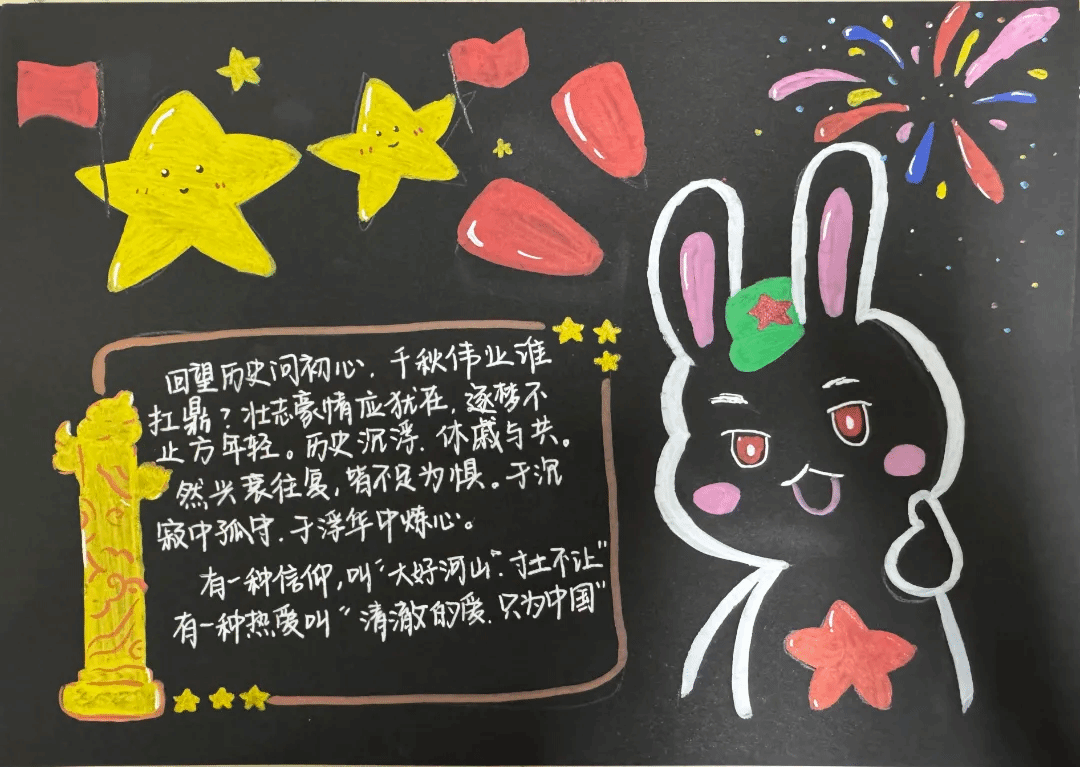 回望历史问初心，千秋伟业谁
扛鼎？壮志豪情应犹在，逐梦不
止方年轻。历史沉浮，休戚与共。
然兴衰往复，皆不足为惧。于沉
寂中孤守，于浮华中炼心。
有一种信仰，叫“大好河山，寸土不让”
有一种热爱叫“清澈的爱，只为中国”